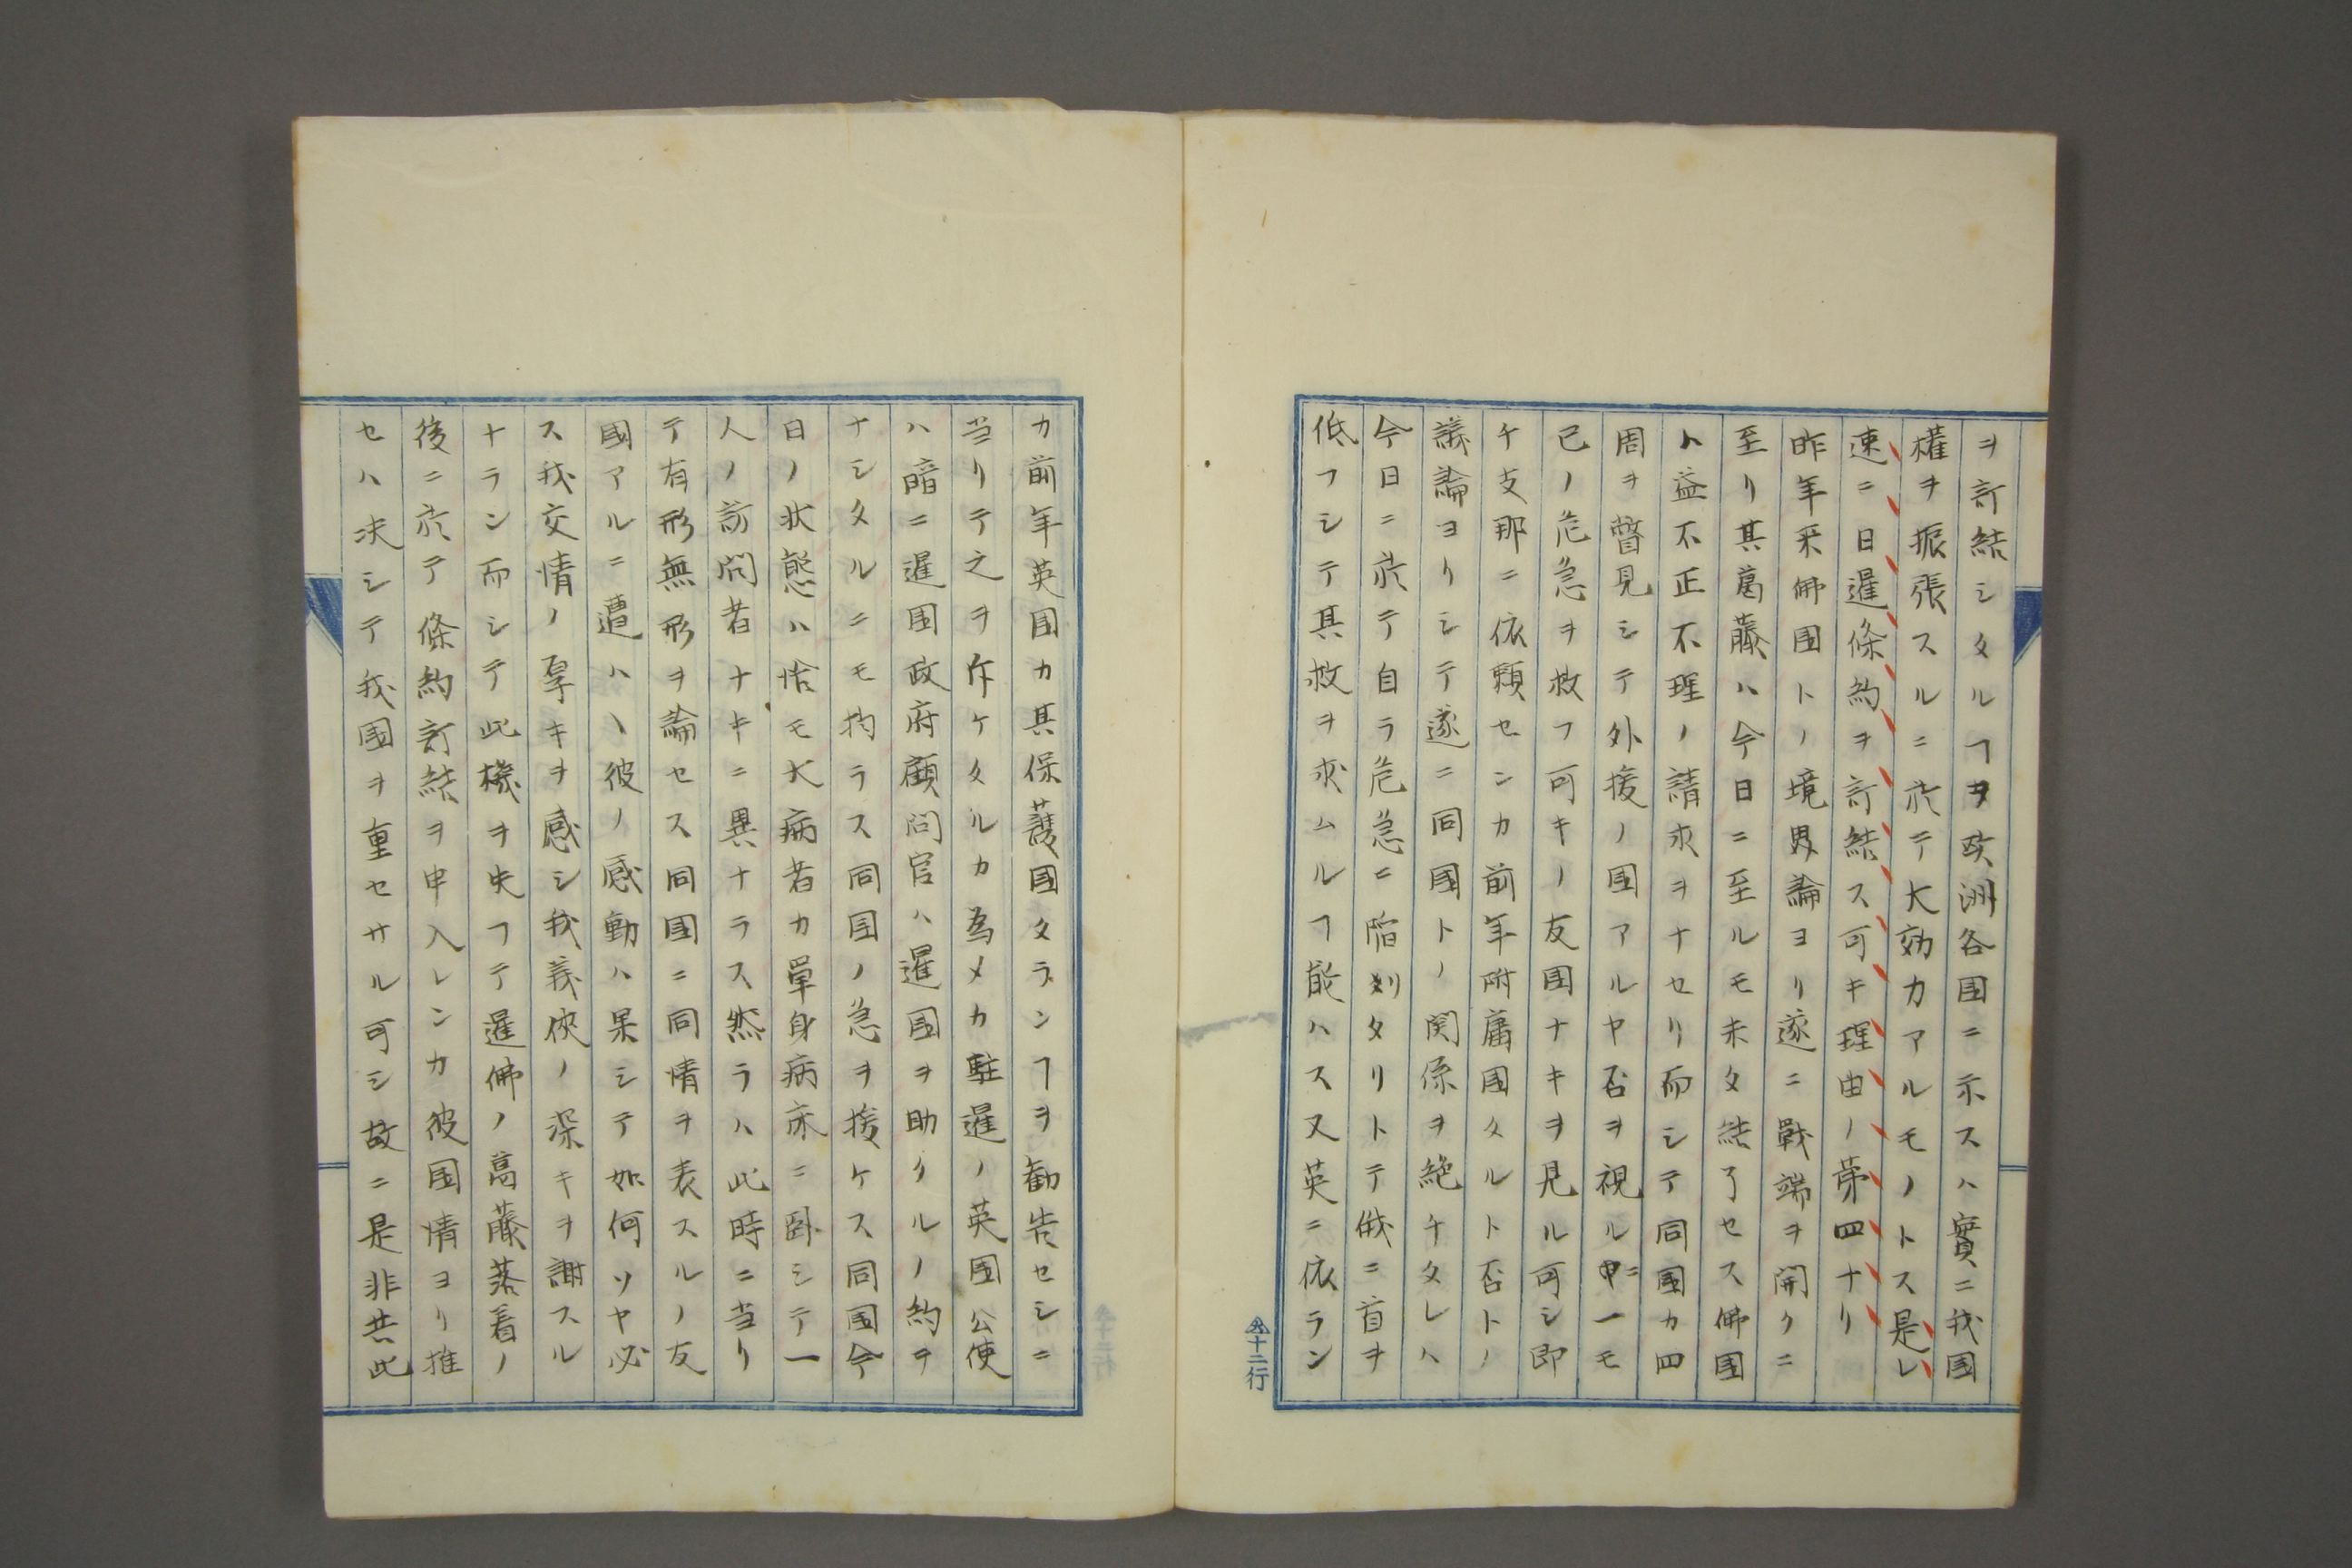 ヲ訂結シタルヿヲ欧洲各国ニ示スハ實ニ我国
権ヲ振張スルニ於テ大効力アルモノトス是レ
速ニ日暹條約ヲ訂結ス可キ理由ノ第四ナリ
昨年来佛国トノ境界論ヨリ遂ニ戰端ヲ開クニ
至リ其葛藤ハ今日ニ至ルモ未タ結了セス佛国
ハ益不正不理ノ請求ヲナセリ而シテ同国カ四
周ヲ瞥見シテ外援ノ国アルヤ否ヲ視ルニ一モ
已ノ危急ヲ救フ可キノ友国ナキヲ見ル可シ即
チ支那ニ依頼センカ前年附庸国タルト否トノ
議論ヨリシテ遂ニ同国トノ関係ヲ絶チタレハ
今日ニ於テ自ラ危急ニ陥リタリトテ俄ニ首ヲ
低フシテ其救ヲ求ムルヿ能ハス又英ニ依ラン
仌十二行
カ前年英国カ其保護国タランヿヲ勧告セシニ
当リテ之ヲ斥ケタルカ為メカ駐暹ノ英国公使
ハ暗ニ暹国政府顧問官ハ暹国ヲ助クルノ約ヲ
ナシタルニモ拘ラス同国ノ急ヲ援ケス同国今
日ノ状態ハ恰モ大病者カ單身病床ニ臥シテ一
人ノ訪問者ナキニ異ナラス然ラハ此時ニ当リ
テ有形無形ヲ論セス同国ニ同情ヲ表スルノ友
國アルニ遭ハヽ彼ノ感動ハ果シテ如何ソヤ必
ス我交情ノ厚キヲ感シ我義侠ノ深キヲ謝スル
ナラン而シテ此機ヲ失フテ暹佛ノ葛藤落着ノ
後ニ於テ條約訂結ヲ申入レンカ彼国情ヨリ推
セハ決シテ我国ヲ重セサル可シ故ニ是非共此